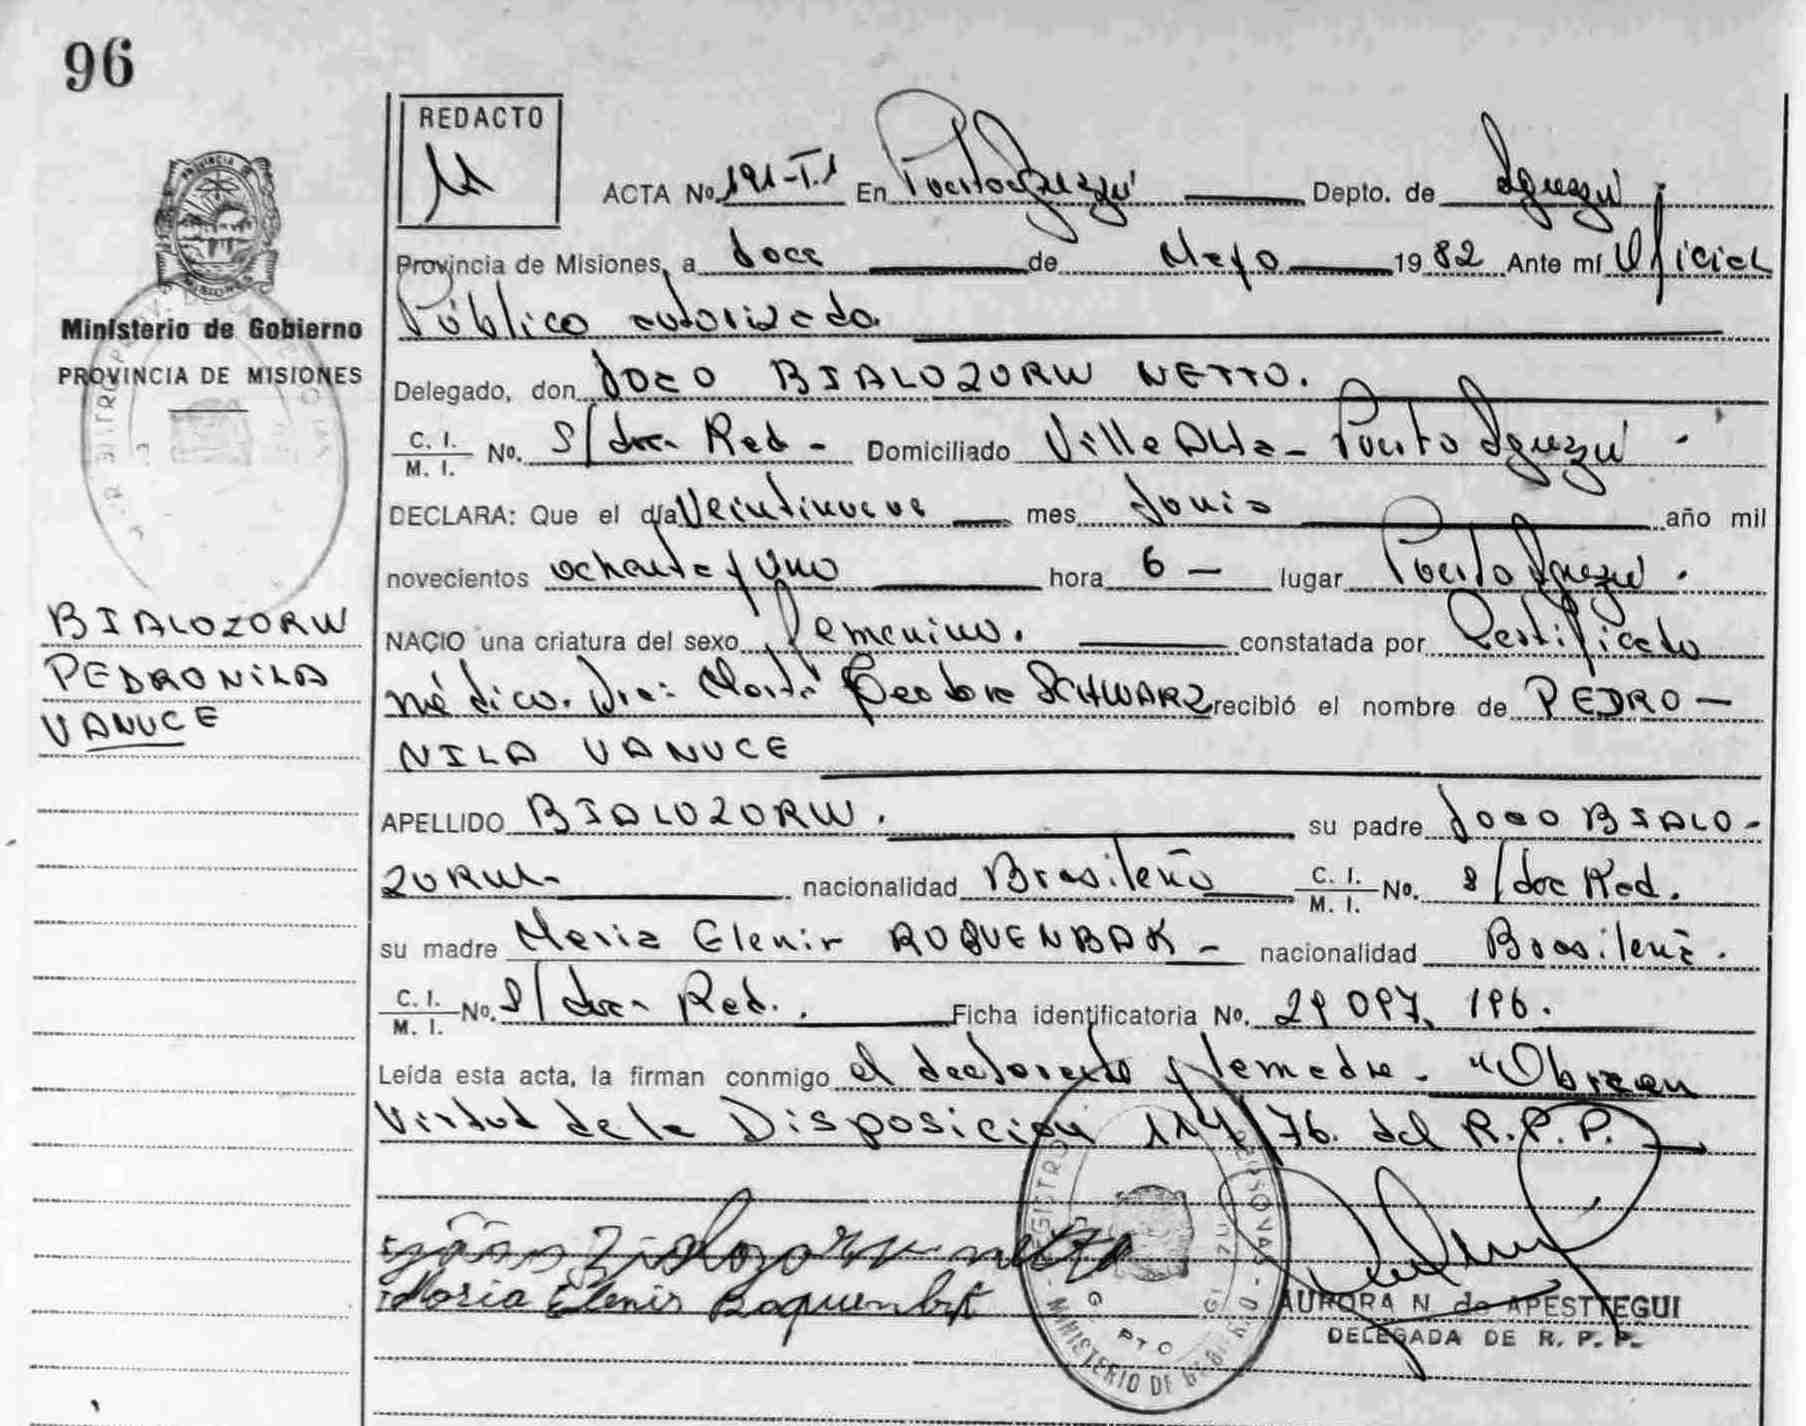 96
REDACTO
ACTA No. 191-T.1 En Puerto Iguazú Depto. de Iguazú.
Provincia de Misiones, a doce de Mayo 1982 Ante mí Oficial
Público autorizado.
Ministerio de Gobierno
PROVINCIA DE MISIONES
Delegado, don Joao BIALOZORW NETTO.
C. I. / M. I. No. S/doc Red - Domiciliado Villa Alta - Puerto Iguazú.
DECLARA: Que el día Veintinueve mes Junio año mil
novecientos ochenta y Uno hora 6 - lugar Puerto Iguazú.
BIALOZORW
PEDRONILA
VANUCE
NACIO una criatura del sexo femenino. constatada por Certificado
médico. Dra: Marta Teodora SCHWARZ recibió el nombre de PEDRO-
NILA VANUCE
APELLIDO BIALOZORW. su padre Joao BIALO-
ZORW- nacionalidad Brasileño C. I. / M. I. No. S/doc Red.
su madre Maria Elenir ROQUENBAK - nacionalidad Brasileña.
C. I. / M. I. No. S/doc Red. Ficha identificatoria No. 29 097, 196.
Leída esta acta, la firman conmigo el declarante y la madre. "Obra en
Virtud de la Disposición 114/76. del R.P.P.
João Bialozorw netto
Maria Elenir Roquenbak
AURORA N. de APESTTEGUI
DELEGADA DE R. P. P.
REGISTRO
MINISTERIO DE
PTO